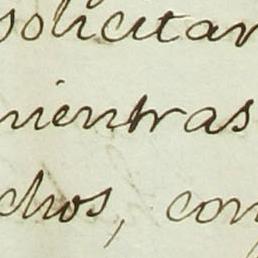 solicitar
mientras
chos, con